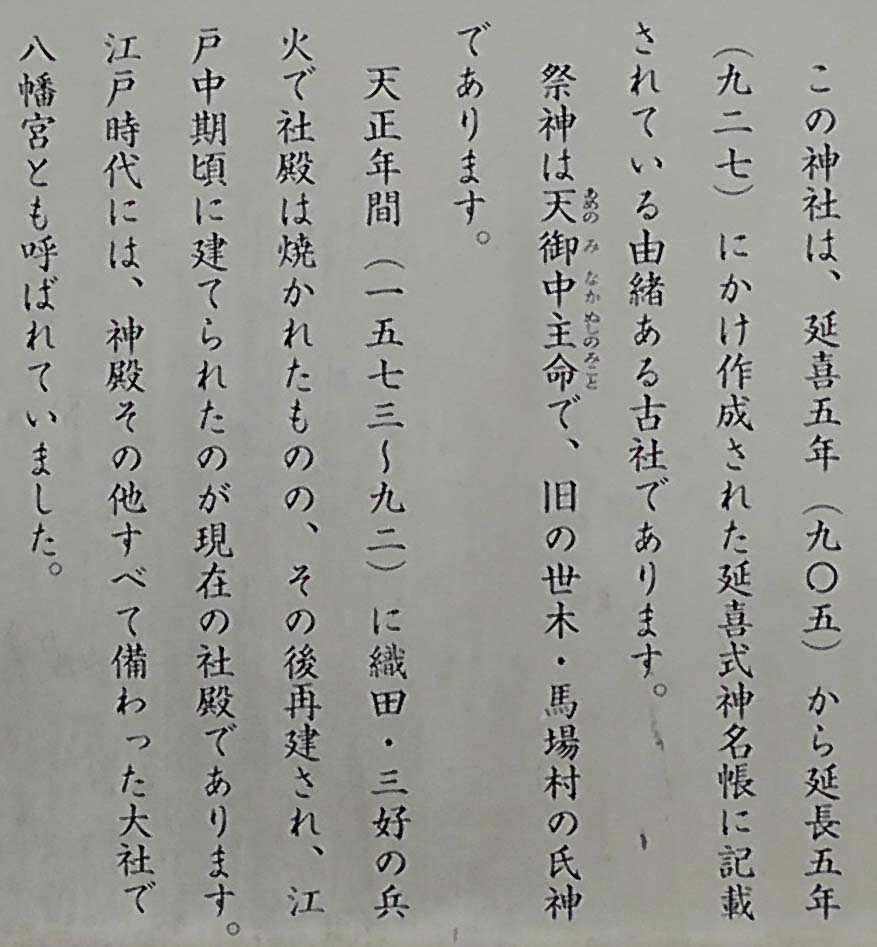 この神社は、延喜五年（九〇五）から延長五年
（九二七）にかけ作成された延喜式神名帳に記載
されている由緒ある古社であります。
祭神は天御中主命で、旧の世木・馬場村の氏神
あめの み なか ぬしのみこと
であります。
天正年間（一五七三〜九二）に織田・三好の兵
火で社殿は焼かれたものの、その後再建され、江
戸中期頃に建てられたのが現在の社殿であります。
江戸時代には、神殿その他すべて備わった大社で
八幡宮とも呼ばれていました。